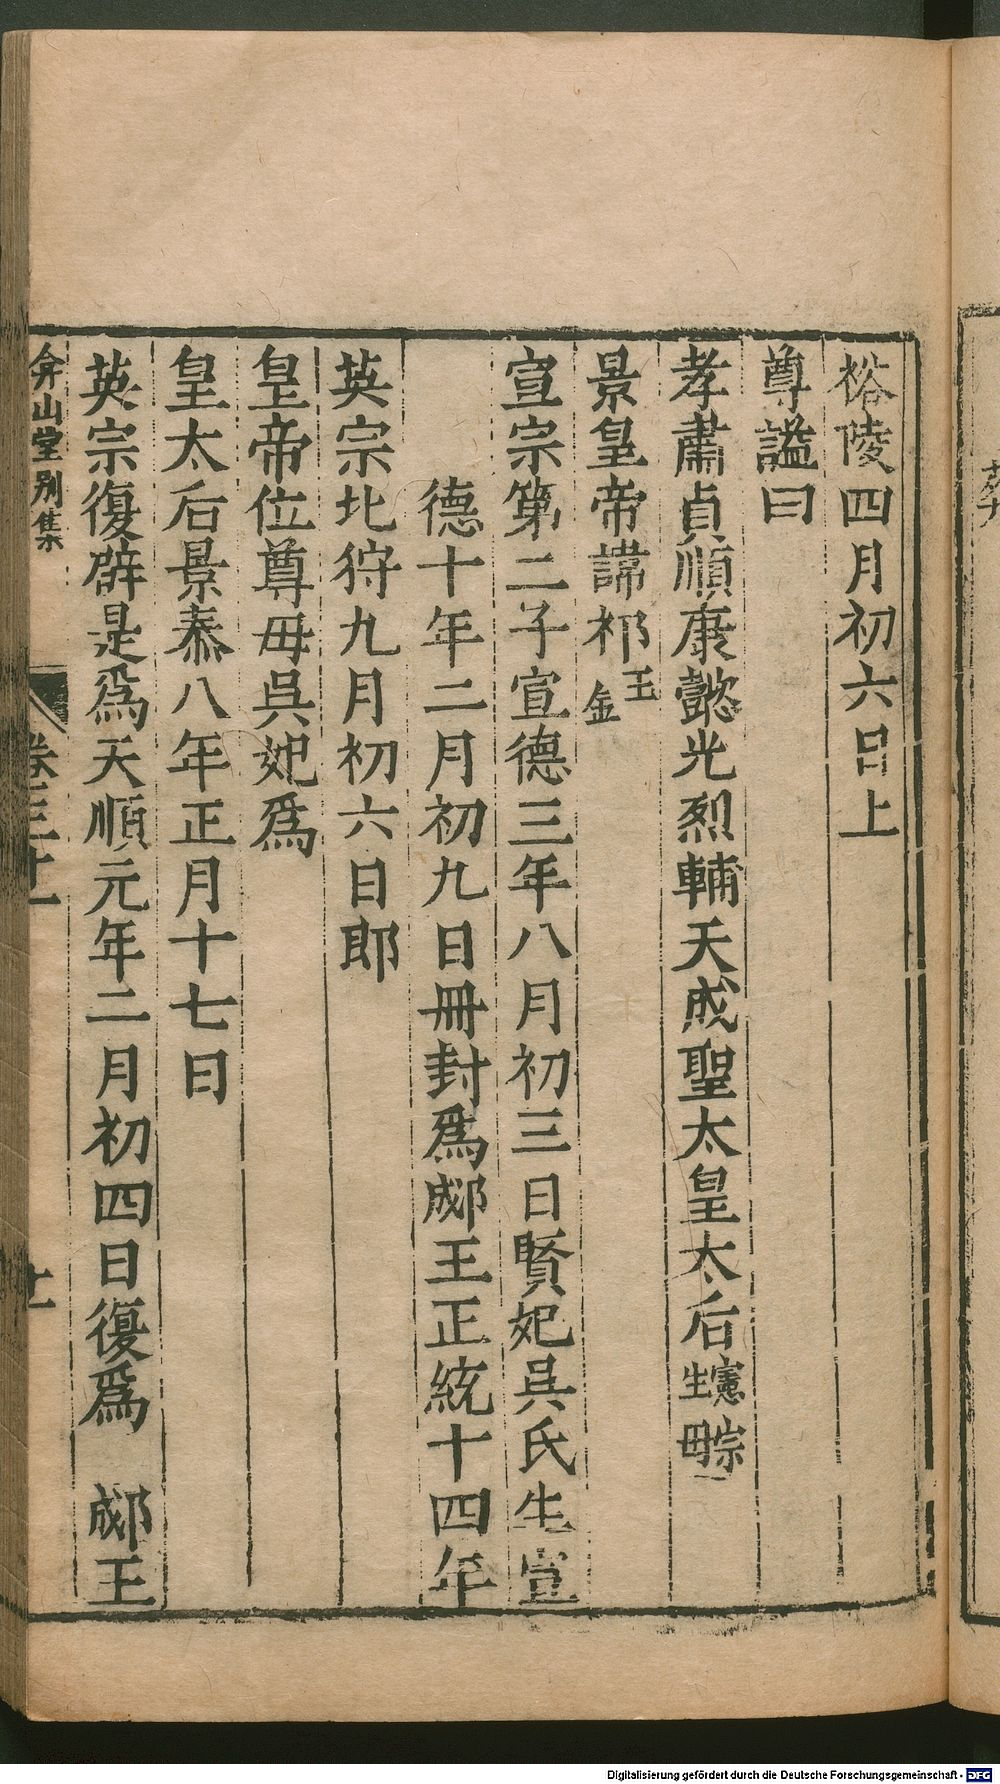 裕陵四月初六日上
尊謚曰
孝肅貞順康懿光烈輔天成聖太皇太后憲宗生母
景皇帝諱祁王金
宣宗第二子宣德三年八月初三日賢妃吳氏生宣
德十年二月初九日冊封爲郕王正統十四年
英宗北狩九月初六日郎
皇帝位尊母吳妃爲
皇太后景泰八年正月十七日
英宗復辟是爲天順元年二月初四日復爲 郕王
弇山堂別集
卷三十一
十一
Digitalisierung gefördert durch die Deutsche Forschungsgemeinschaft - DFG